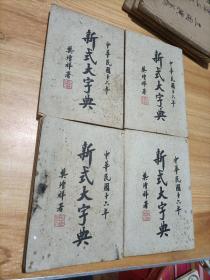 中華民國十六年
新式大字典
樊增祥署
中華民國十六年
新式大字典
樊增祥署
中華民國十六年
新式大字典
樊增祥署
中華民國十六年
新式大字典
樊增祥署